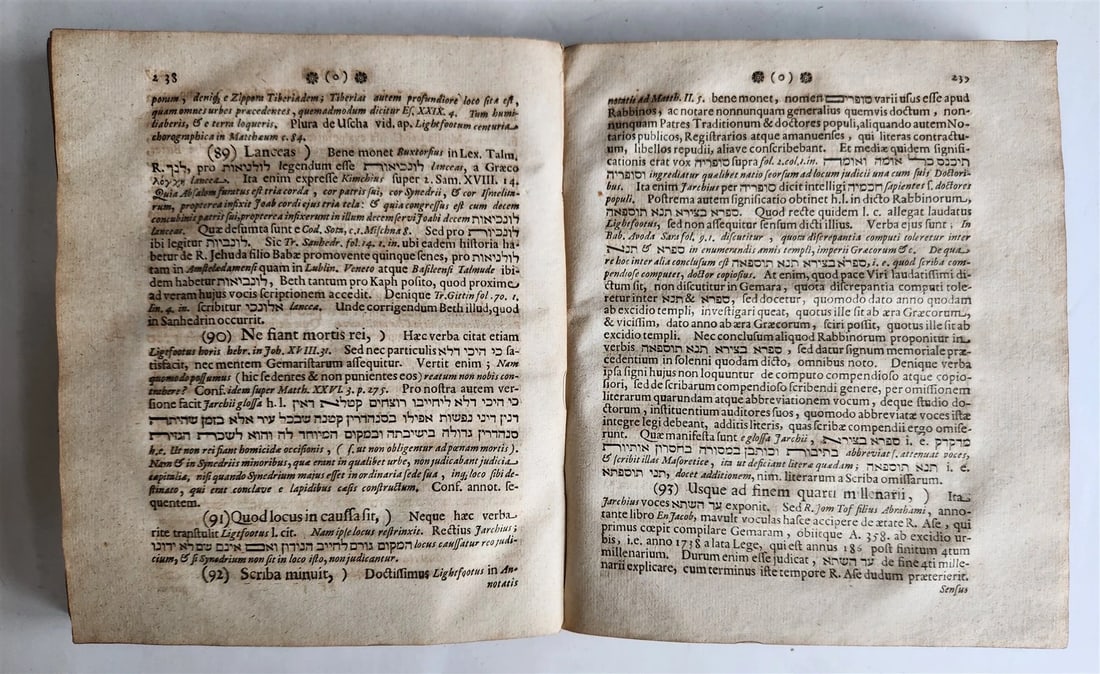 238 (0)
porum, deniq; e Zippora Tiberiadem; Tiberiai autem profundiore loco sita est,
quam omnes urbes præcedentes, quemadmodum dicitur Es. XXIX. 4. Tum humi-
liaberis, & e terra loqueris. Plura de Uscha vid. ap. Lightfootum centuria
chorographica in Matthæum c. 84.
(89) Lanceas ) Bene monet Buxtorfius in Lex. Talm.
R. לנך, pro לולניאות legendum esse לונכיאות lanceas, a Græco
λόγχη lancea. Ita enim expresse Kimchius super 2. Sam. XVIII. 14.
Quia Absalom furatus est tria corda, cor patris sui, cor Synedrii, & cor Israelita-
rum, propterea infixit Joab cordi ejus tria tela: & quia congressus est cum decem
concubinis patris sui, propterea infixerunt in illum decem servi Joabi decem לונכיאות
lanceas. Quæ desumta sunt e Cod. Sota, c. 1. Mischna 8. Sed pro לונכיאות
ibi legitur לונביות. Sic Tr. Sanhedr. fol. 14. 1. in. ubi eadem historia ha-
betur de R. Jehuda filio Babæ promovente quinque senes, pro ista
tam in Amstelædamensi quam in Lublin. Veneto atque Basileensi Talmude ibi-
dem habetur לונביאות, Beth tantum pro Kaph posito, quod proxime
ad veram hujus vocis scriptionem accedit. Denique Tr. Gittin fol. 70. 1.
lin. 4. in. scribitur אלונכי lancea. Unde corrigendum Beth illud, quod
in Sanhedrin occurrit.
(90) Ne fiant mortis rei, ) Hæc verba citat etiam
Ligtfootus horis hebr. in Joh. XVIII. 31. Sed nec particulis כי היכי דלא sa-
tisfacit, nec mentem Gemaristarum assequitur. Vertit enim; Nam
quomodo possumus (hic sedentes & non punientes eos) reatum non nobis con-
trahere? Conf. idem super Matth. XXVI. 3. p. 275. Pro nostra autem ver-
sione facit Jarchii glossa h. l. כי היכי דלא ליחייבו רוצחים קטלא דאין
דנין דיני נפשות אפילו בסנהדרין קטנה שבכל עיר אלא בזמן שהיתה
סנהדרין גדולה בישיבתה ובמקום המיוחד לה והוא לשכרת הגזית
h. e. Ut non rei fiant homicidæ occisionis, (s. ut non obligentur ad pœnam mortis).
Nam & in Synedriis minoribus, quæ erant in qualibet urbe, non judicabant judicia
capitalia, nisi quando Synedrium majus esset in ordinaria sede sua, inq; loco sibi de-
stinato, qui erat conclave e lapidibus cæsis constructum. Conf. annot. se-
quentem.
(91) Quod locus in caussa sit, ) Neque hæc verba
rite transtulit Ligtfootus l. cit. Nam ipse locus restrinxit. Rectius Jarchius;
המקום גורם לחייב הנידון ואם אינם שם לא ידונו locus caussatur reo judi-
cium, & si Synedrium non sit in loco isto, non judicantur.
(92) Scriba minuit, ) Doctissimus Lightfootus in An-
notatis
(0) 239
notatis ad Matth. II. 5. bene monet, nomen סופרים varii usus esse apud
Rabbinos, ac notare nonnunquam generalius quemvis doctum, non-
nunquam Patres Traditionum & doctores populi, aliquando autem No-
tarios publicos, Registrarios atque amanuenses, qui literas contractu-
um, libellos repudii, aliave conscribebant. Et mediæ quidem signifi-
cationis erat vox סופריה supra fol. 2. col. 1. in. תיכנס כל אומה ואומה
וסופריה ingrediatur qualibet natio seorsum ad locum judicii una cum suis Doctori-
bus. Ita enim Jarchius per סופריה dicit intelligi חכמיה sapientes s. doctores
populi. Postrema autem significatio obtinet h. l. in dicto Rabbinorum,
ספרא בצירא תנא תוספאה. Quod recte quidem l. c. allegat laudatus
Lightfootus, sed non assequitur sensum dicti illius. Verba ejus sunt: In
Bab. Avoda Sara fol. 9. 1. discutitur, quota discrepantia computi toleretur inter
תנא & ספרא in enumerandis annis templi, imperii Græcorum &c. De qua
re hoc inter alia conclusum est ספרא בצירא תנא תוספאה, i. e. quod scriba com-
pendiose computet, doctor copiosius. At enim, quod pace Viri laudatissimi di-
ctum sit, non discutitur in Gemara, quota discrepantia computi tole-
retur inter תנא & ספרא, sed docetur, quomodo dato anno quodam
ab excidio templi, investigari queat, quotus ille sit ab æra Græcorum,
& vicissim, dato anno ab æra Græcorum, sciri possit, quotus ille sit ab
excidio templi. Nec conclusum aliquod Rabbinorum proponitur in
verbis ספרא בצירא תנא תוספאה, sed datur signum memoriale præ-
cedentium in solenni quodam dicto, omnibus noto. Denique verba
ipsa signi hujus non loquuntur de computo compendioso atque copio-
siori, sed de scribarum compendioso scribendi genere, per omissionem
literarum quarundam atque abbreviationem vocum, deque studio do-
ctorum, instituentium auditores suos, quomodo abbreviatæ voces istæ
integre legi debeant, additis literis, quas scribæ compendii ergo omise-
runt. Quæ manifesta sunt e glossa Jarchii, ספרא בצירא i. e. מדקדק
בתיבורת וכותבן במסורה בחסרון אותיורת abbreviat s. attenuat voces,
& scribit illas Masoretice, ita ut deficiant literæ quædam; תנא תוספאה i. e.
תני תוספתא, docet additionem, nim. literarum a Scriba omissarum.
(93) Usque ad finem quarti millenarii, ) Ita
Jarchius voces עד השתא exponit. Sed R. Jom Tof filius Abrahami, anno-
tante libro En Jacob, mavult voculas hasce accipere de ætate R. Ase, qui
primus cœpit compilare Gemaram, obiitque A. 358. ab excidio ur-
bis, i. e. anno 1738 a lata Lege, qui est annus 186 post finitum 4tum
millenarium. Durum enim esse judicat, עד השתא de fine 4ti mille-
narii explicare, cum terminus iste tempore R. Ase dudum præterierit.
Sensus